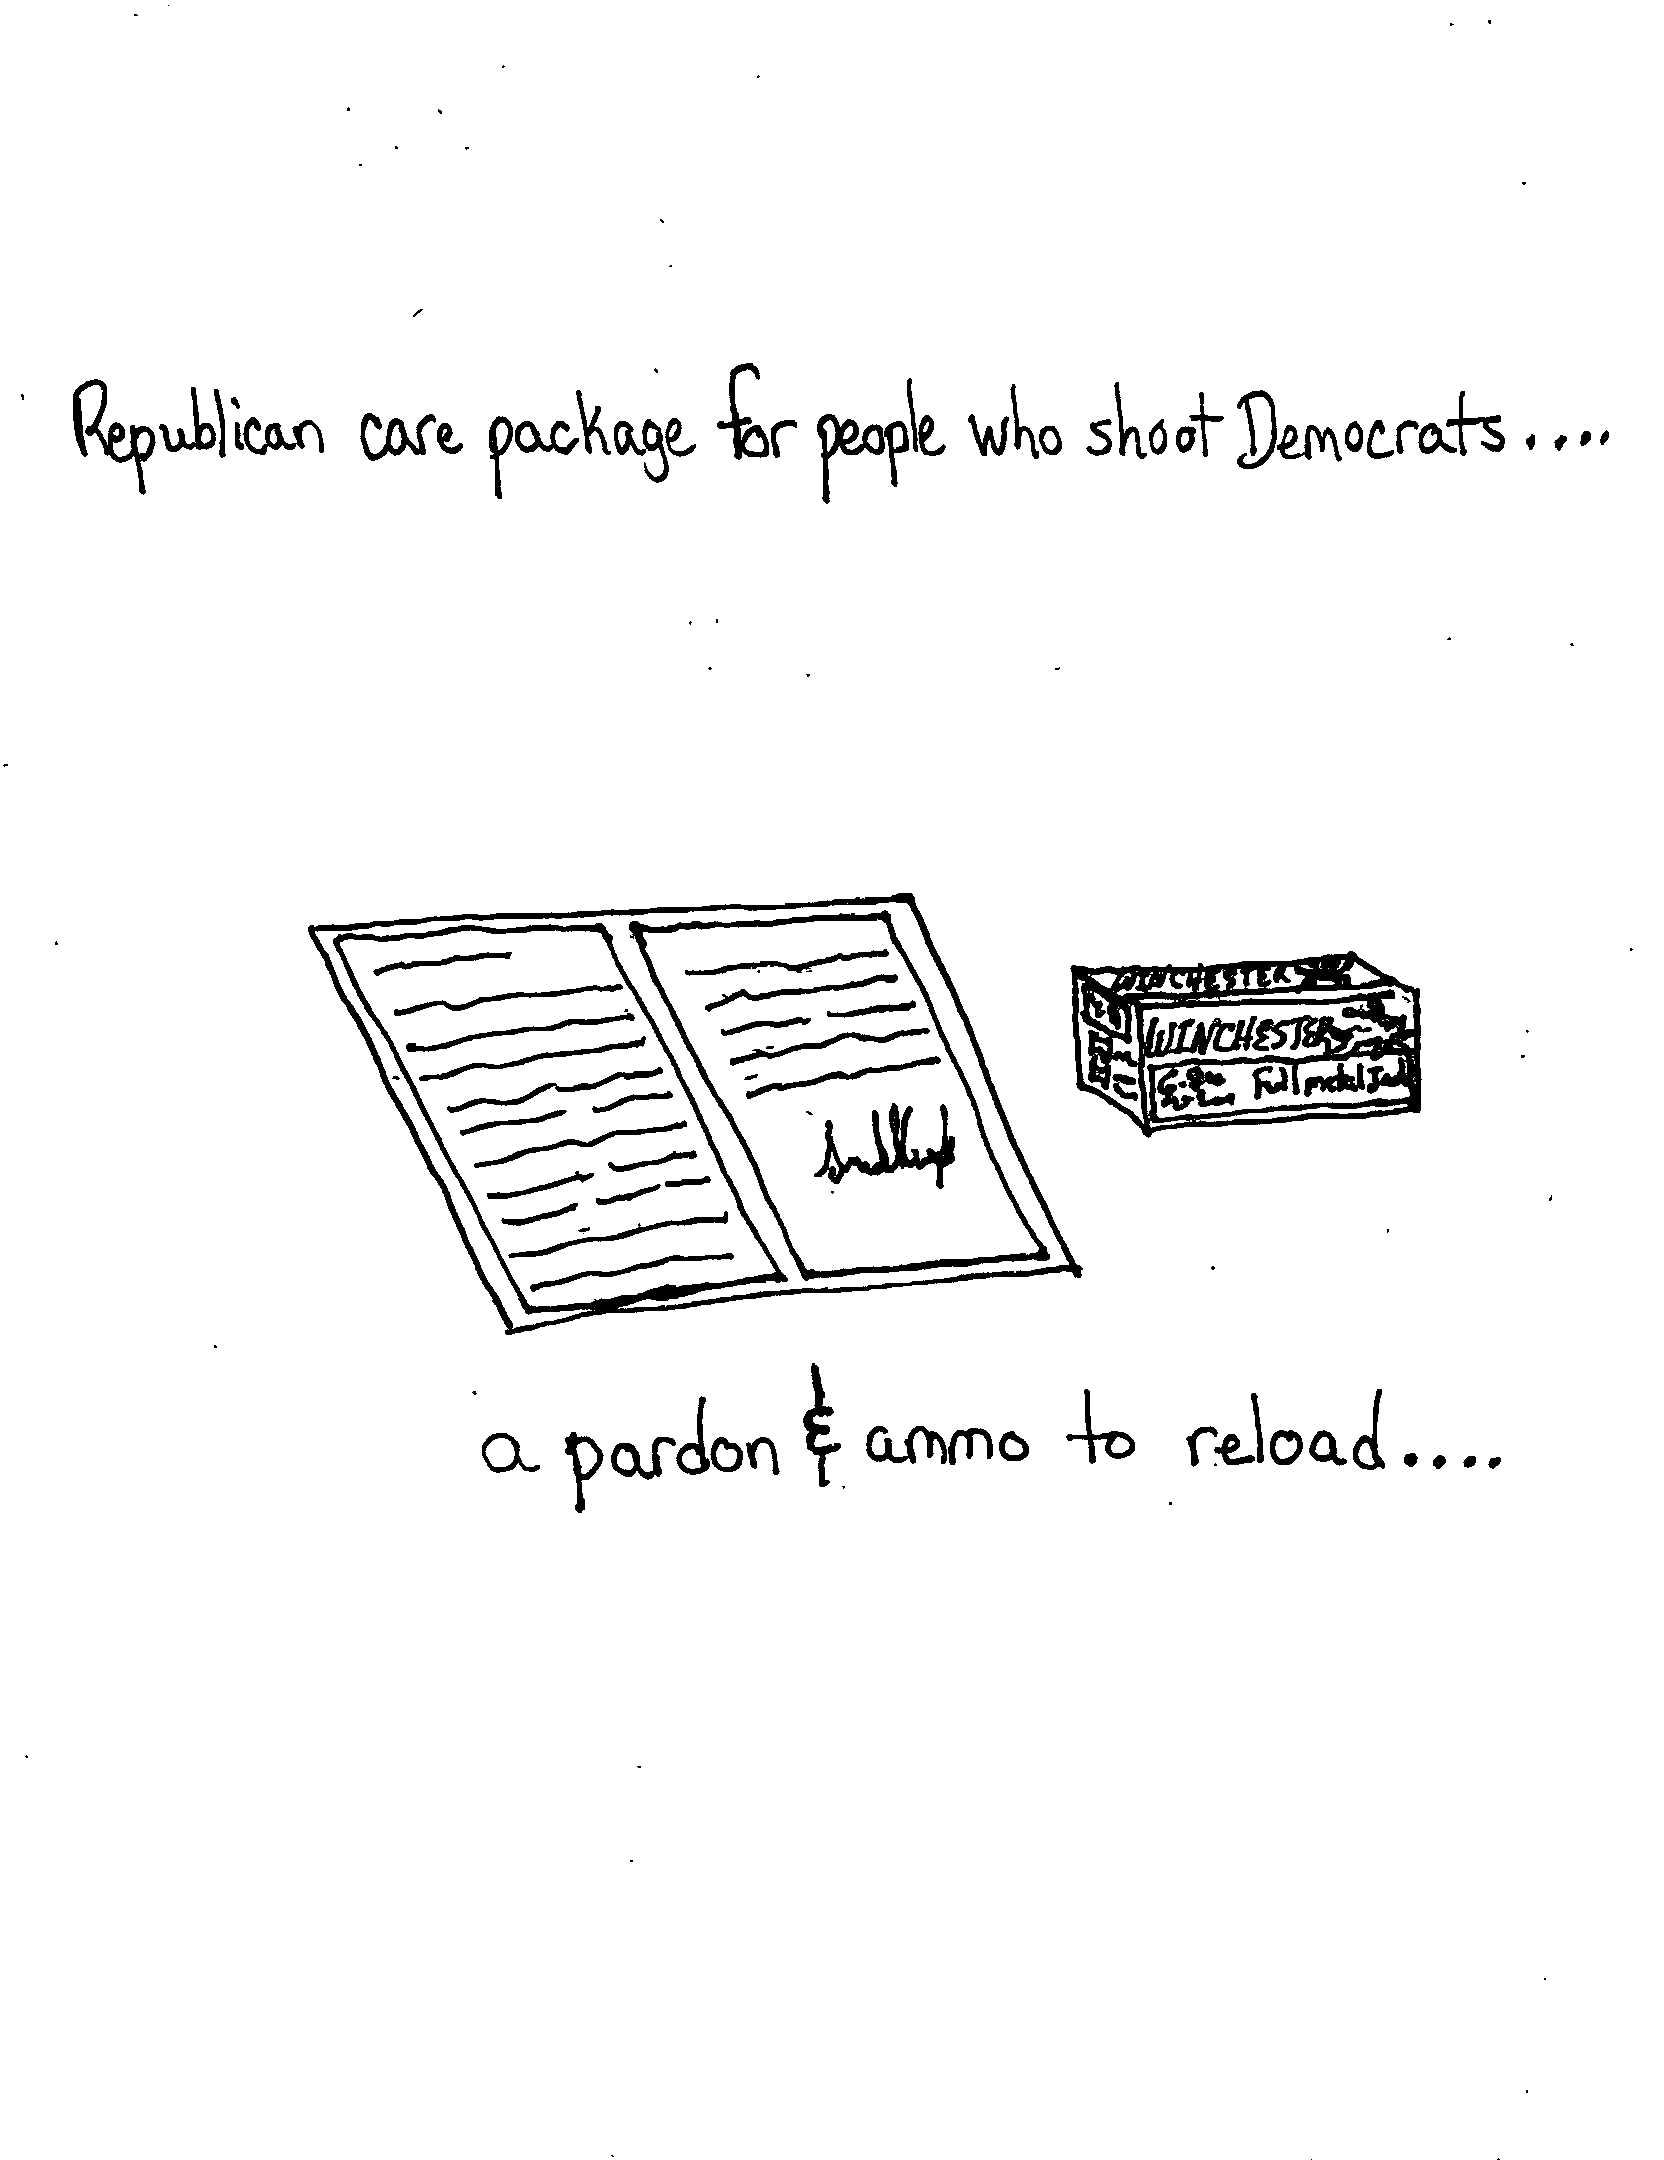 Republican care package for people who shoot Democrats....
WINCHESTER
WINCHESTER
Full metal Jack
a pardon & ammo to reload....